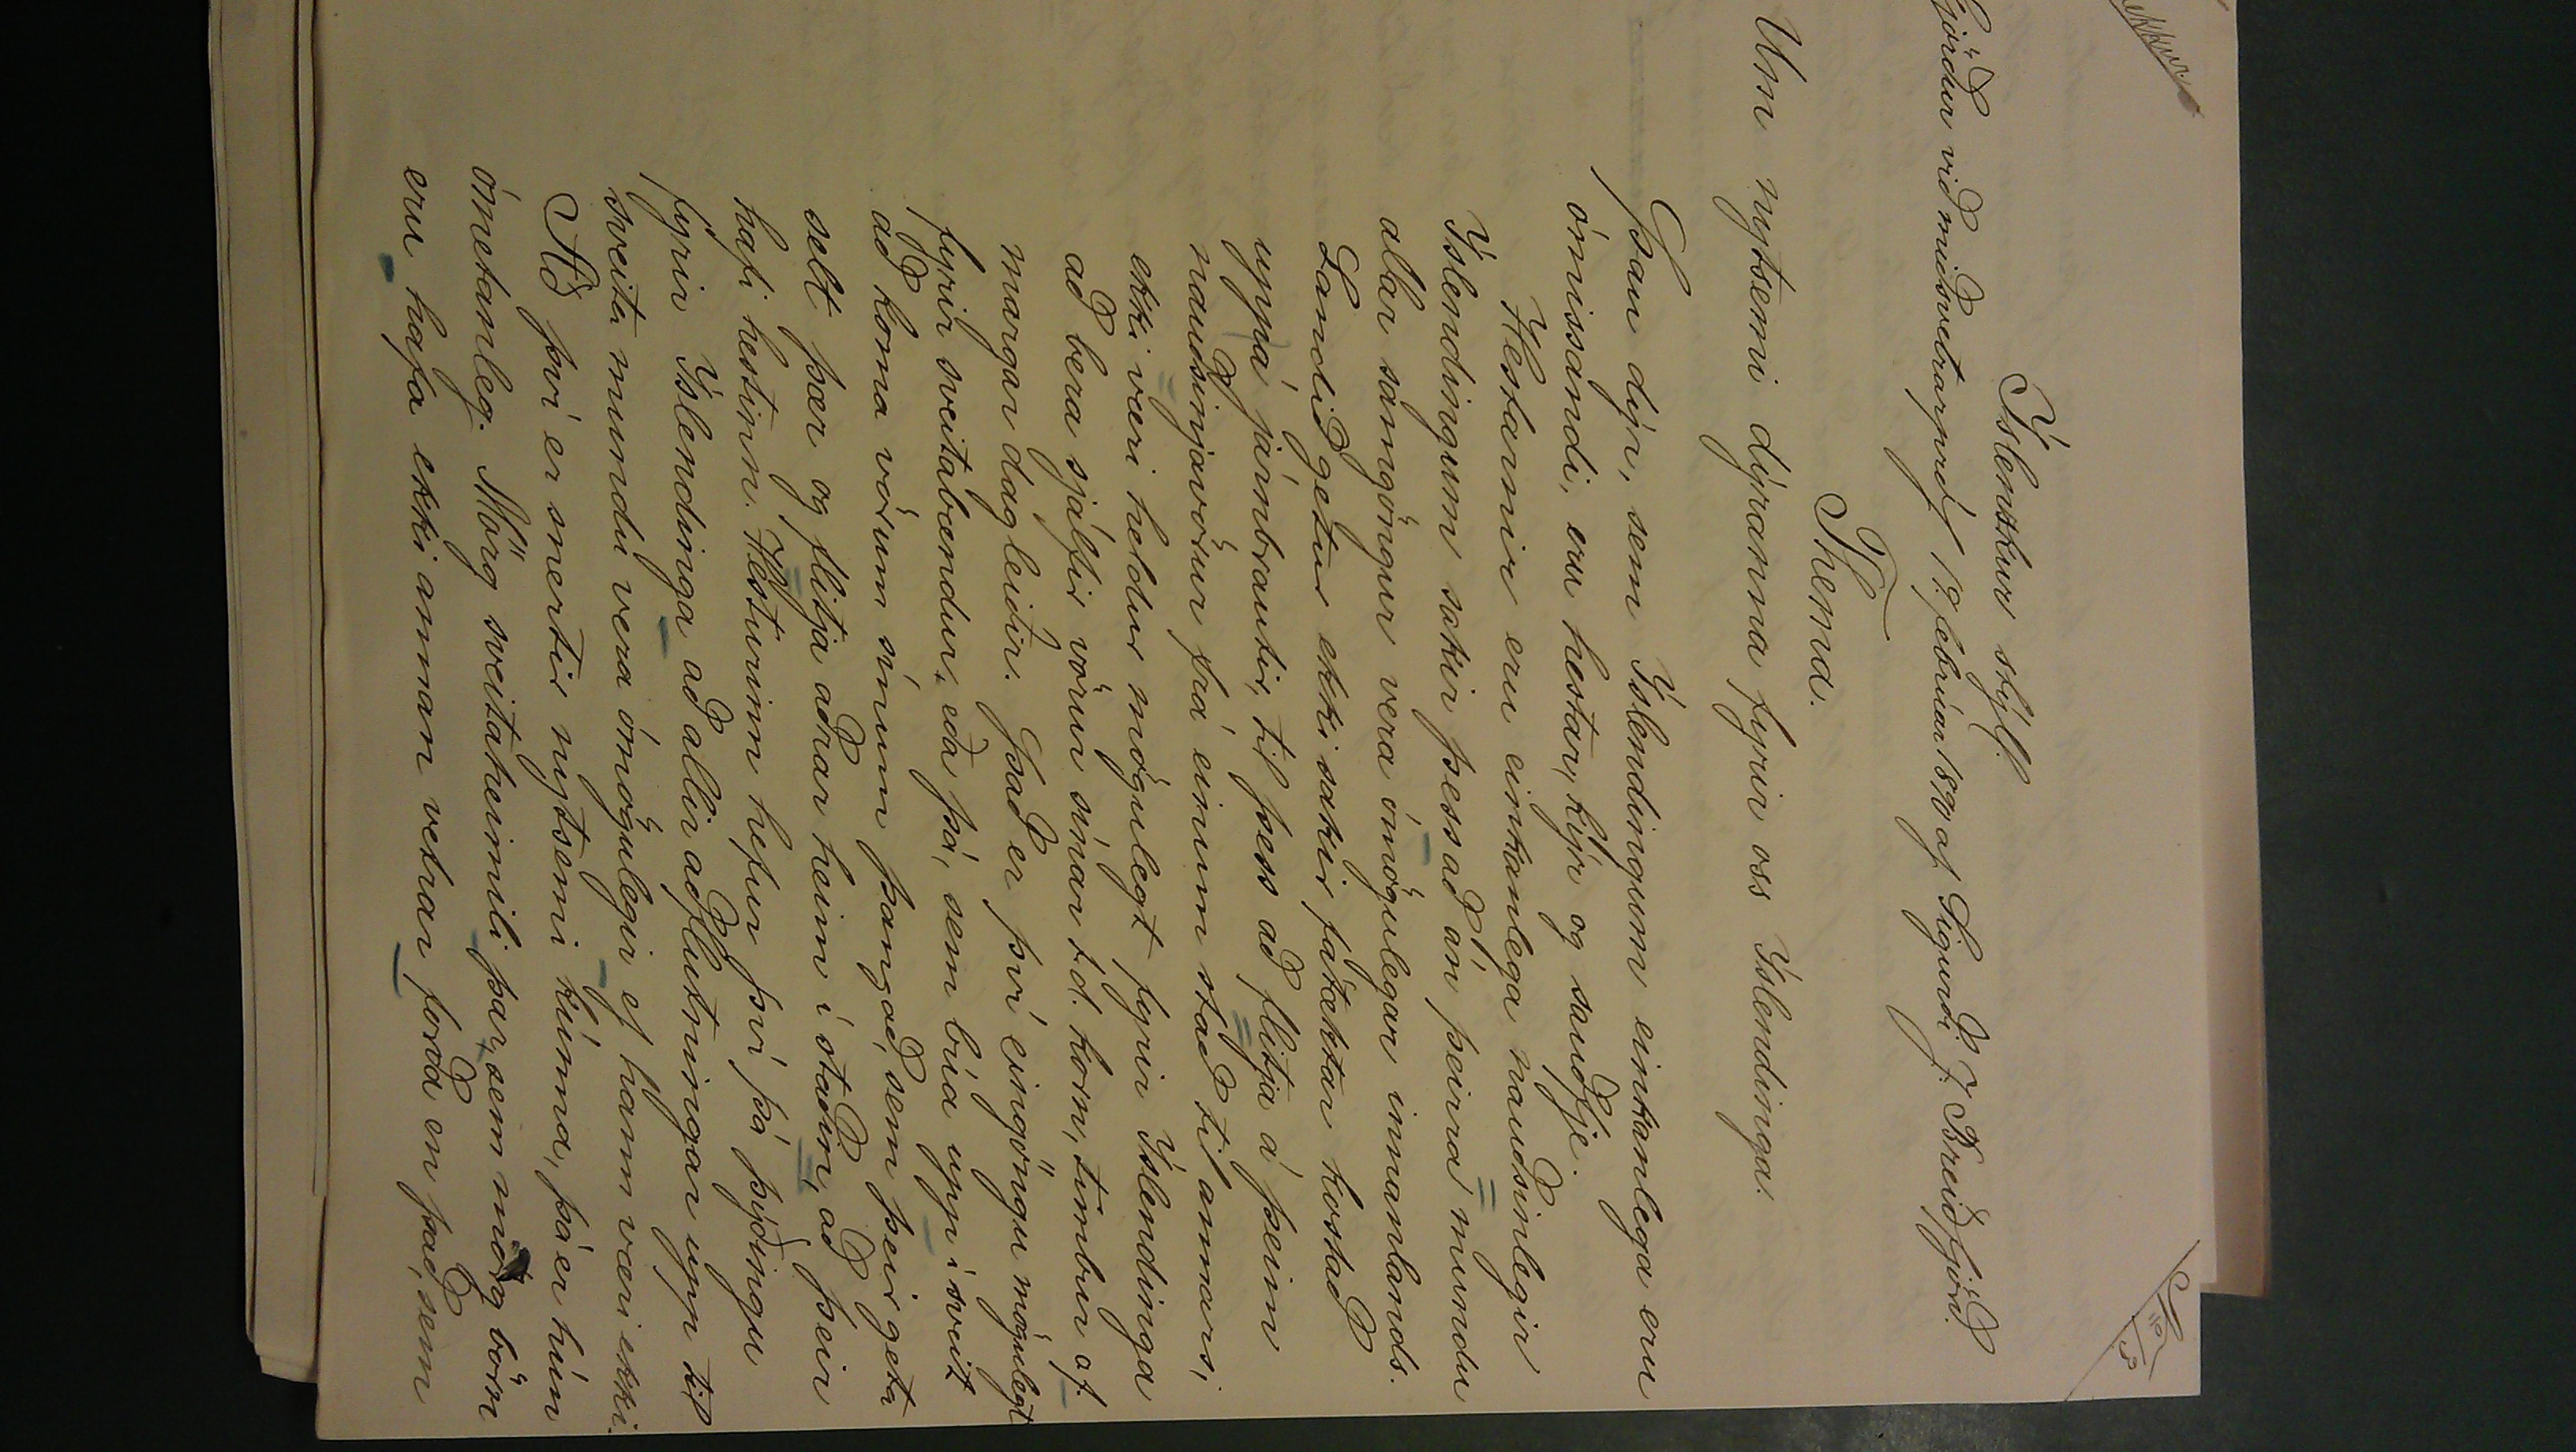 Íslenskur stýll.
gjörður við miðsvetrarpróf 19. febrúar 1890 af Sigurði J. Breiðfjörð.
Thema.
Um nytsemi dýranna fyrir oss Íslendinga.
Þau dýr, sem Íslendingum einkanlega eru
ómissandi, eru hestar, kýr og sauðfje.
Hestarnir eru einkanlega nauðsinlegir
Íslendingum sakir þess að án þeirra mundu
allar samgöngur vera ómögulegar innanlands.
Landið getur ekki sakir fátæktar kostað
uppá járnbrautir, til þess að flitja á þeim
nauðsinjavörur frá einum stað til annars,
ekki væri heldur mögulegt fyrir Íslendinga
að bera sjálfir vörur sínar t.d. korn, timbur o.f.
margar dagleiðir. Það er því eingöngu mögulegt
fyrir sveitabændur, eða þá, sem búa upp í sveit
að koma vörum sínum þangað, sem þeir geta
selt þær og flitja aðrar heim í staðin, að þeir
hafi hestinn. Hesturinn hefur því þá þýðingu
fyrir Íslendinga að allir aðflutningar upp til
sveita mundu vera ómögulegir ef hann væri ekki.
Að því er snertir nytsemi kúnna, þá er hún
ómetanleg. Mörg sveitaheimili þar, sem mörg börn
eru hafa ekki annan vetrar forða en það, sem